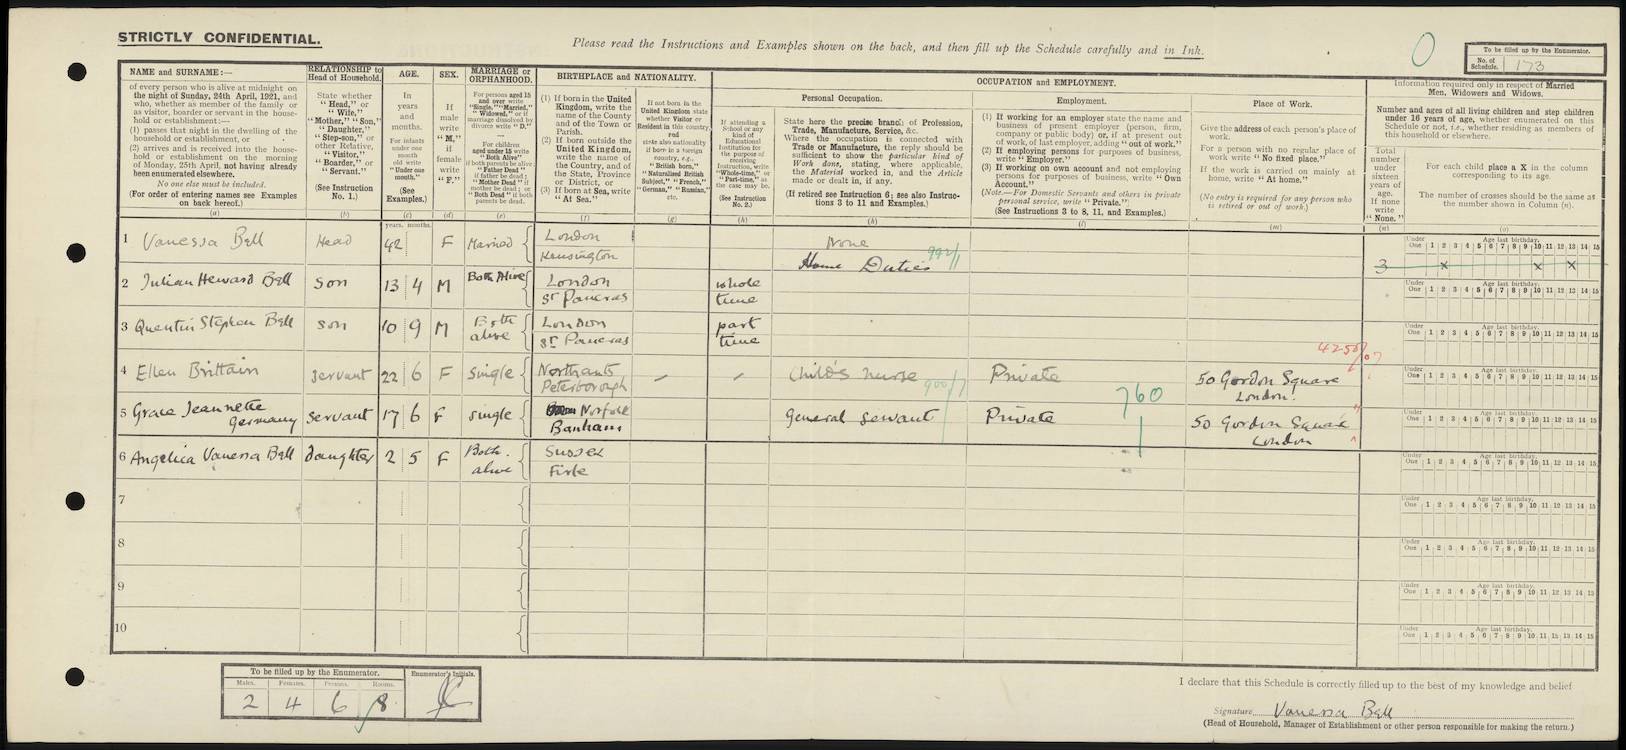 STRICTLY CONFIDENTIAL.
Please read the Instructions and Examples shown on the back, and then fill up the Schedule carefully and in Ink.
0
To be filled up by the Enumerator.
No. of Schedule. 173
NAME and SURNAME:—
of every person who is alive at midnight on
the night of Sunday, 24th April, 1921, and
who, whether as member of the family or
as visitor, boarder or servant in the house-
hold or establishment:—
(1) passes that night in the dwelling of the
household or establishment, or
(2) arrives and is received into the house-
hold or establishment on the morning
of Monday, 25th April, not having already
been enumerated elsewhere.
No one else must be included.
(For order of entering names see Examples
on back hereof.)
(a)
RELATIONSHIP to
Head of Household.
State whether
"Head," or
"Wife,"
"Mother," "Son,"
"Daughter,"
"Step-son," or
other Relative,
"Visitor,"
"Boarder," or
"Servant."
(See Instruction
No. 1.)
(b)
AGE.
In
years
and
months.
For infants
under one
month
write
"Under one
month."
(See
Examples.)
(c)
years. months.
SEX.
If
male
write
"M,"
if
female
write
"F."
(d)
MARRIAGE or
ORPHANHOOD.
For persons aged 15
and over write
"Single," "Married,"
"Widowed," or if
marriage dissolved by
divorce write "D."
For children
aged under 15 write
"Both Alive"
if both parents be alive
"Father Dead"
if father be dead;
"Mother Dead" if
mother be dead; or
"Both Dead" if both
parents be dead.
(e)
BIRTHPLACE and NATIONALITY.
(1) If born in the United
Kingdom, write the
name of the County
and of the Town or
Parish.
(2) If born outside the
United Kingdom,
write the name of
the Country, and of
the State, Province
or District, or
(3) If born at Sea, write
"At Sea."
(f)
If not born in the
United Kingdom state
whether Visitor or
Resident in this country
and
state also nationality
if born in a foreign
country, e.g.,
"British born,"
"Naturalised British
Subject," "French,"
"German," "Russian,"
etc.
(g)
OCCUPATION and EMPLOYMENT.
If attending a
School or any
kind of
Educational
Institution for
the purpose of
receiving
Instruction, write
"Whole-time," or
"Part-time," as
the case may be.
(See Instruction
No. 2.)
(h)
Personal Occupation.
State here the precise branch of Profession,
Trade, Manufacture, Service, &c.
Where the occupation is connected with
Trade or Manufacture, the reply should be
sufficient to show the particular kind of
Work done, stating, where applicable,
the Material worked in, and the Article
made or dealt in, if any.
(If retired see Instruction 6; see also Instruc-
tions 3 to 11 and Examples.)
Employment.
(1) If working for an employer state the name and
business of present employer (person, firm,
company or public body) or, if at present out
of work, of last employer, adding "out of work."
(2) If employing persons for purposes of business,
write "Employer."
(3) If working on own account and not employing
persons for purposes of business, write "Own
Account."
(Note.—For Domestic Servants and others in private
personal service, write "Private.")
(See Instructions 3 to 8, 11, and Examples.)
(l)
Place of Work.
Give the address of each person's place of
work.
For a person with no regular place of
work write "No fixed place."
If the work is carried on mainly at
home, write "At home."
(No entry is required for any person who
is retired or out of work.)
(m)
Information required only in respect of Married
Men, Widowers and Widows.
Number and ages of all living children and step children
under 16 years of age, whether enumerated on this
Schedule or not, i.e., whether residing as members of
this household or elsewhere.
Total
number
under
sixteen
years of
age.
If none
write
"None."
(n)
For each child place a X in the column
corresponding to its age.
The number of crosses should be the same as
the number shown in Column (n).
(o)
1 Vanessa Bell Head 42 F Married London Kensington None Home Duties 992/1 3 x x x
2 Julian Heward Bell Son 13 4 M Both Alive London St Pancras whole time
3 Quentin Stephen Bell Son 10 9 M Both alive London St Pancras part time
4 Ellen Brittain servant 22 6 F Single Northants Peterborough – – Child's nurse 900/7 Private 50 Gordon Square London.
5 Grace Jeannette Germany servant 17 6 F single Norfolk Banham general servant Private 760 1 50 Gordon Square London
6 Angelica Vanessa Bell daughter 2 5 F Both alive Sussex Firle
7
8
9
10
Under One 1 2 3 4 5 6 7 8 9 10 11 12 13 14 15
Age last birthday.
To be filled up by the Enumerator.
Males. Females. Persons. Rooms.
2 4 6 8
Enumerator's Initials.
I declare that this Schedule is correctly filled up to the best of my knowledge and belief
Signature Vanessa Bell
(Head of Household, Manager of Establishment or other person responsible for making the return.)